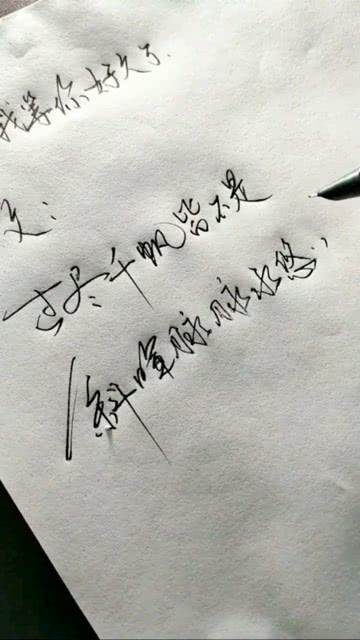 我等你好久了.
复:
过尽千帆皆不是
斜晖脉脉水悠